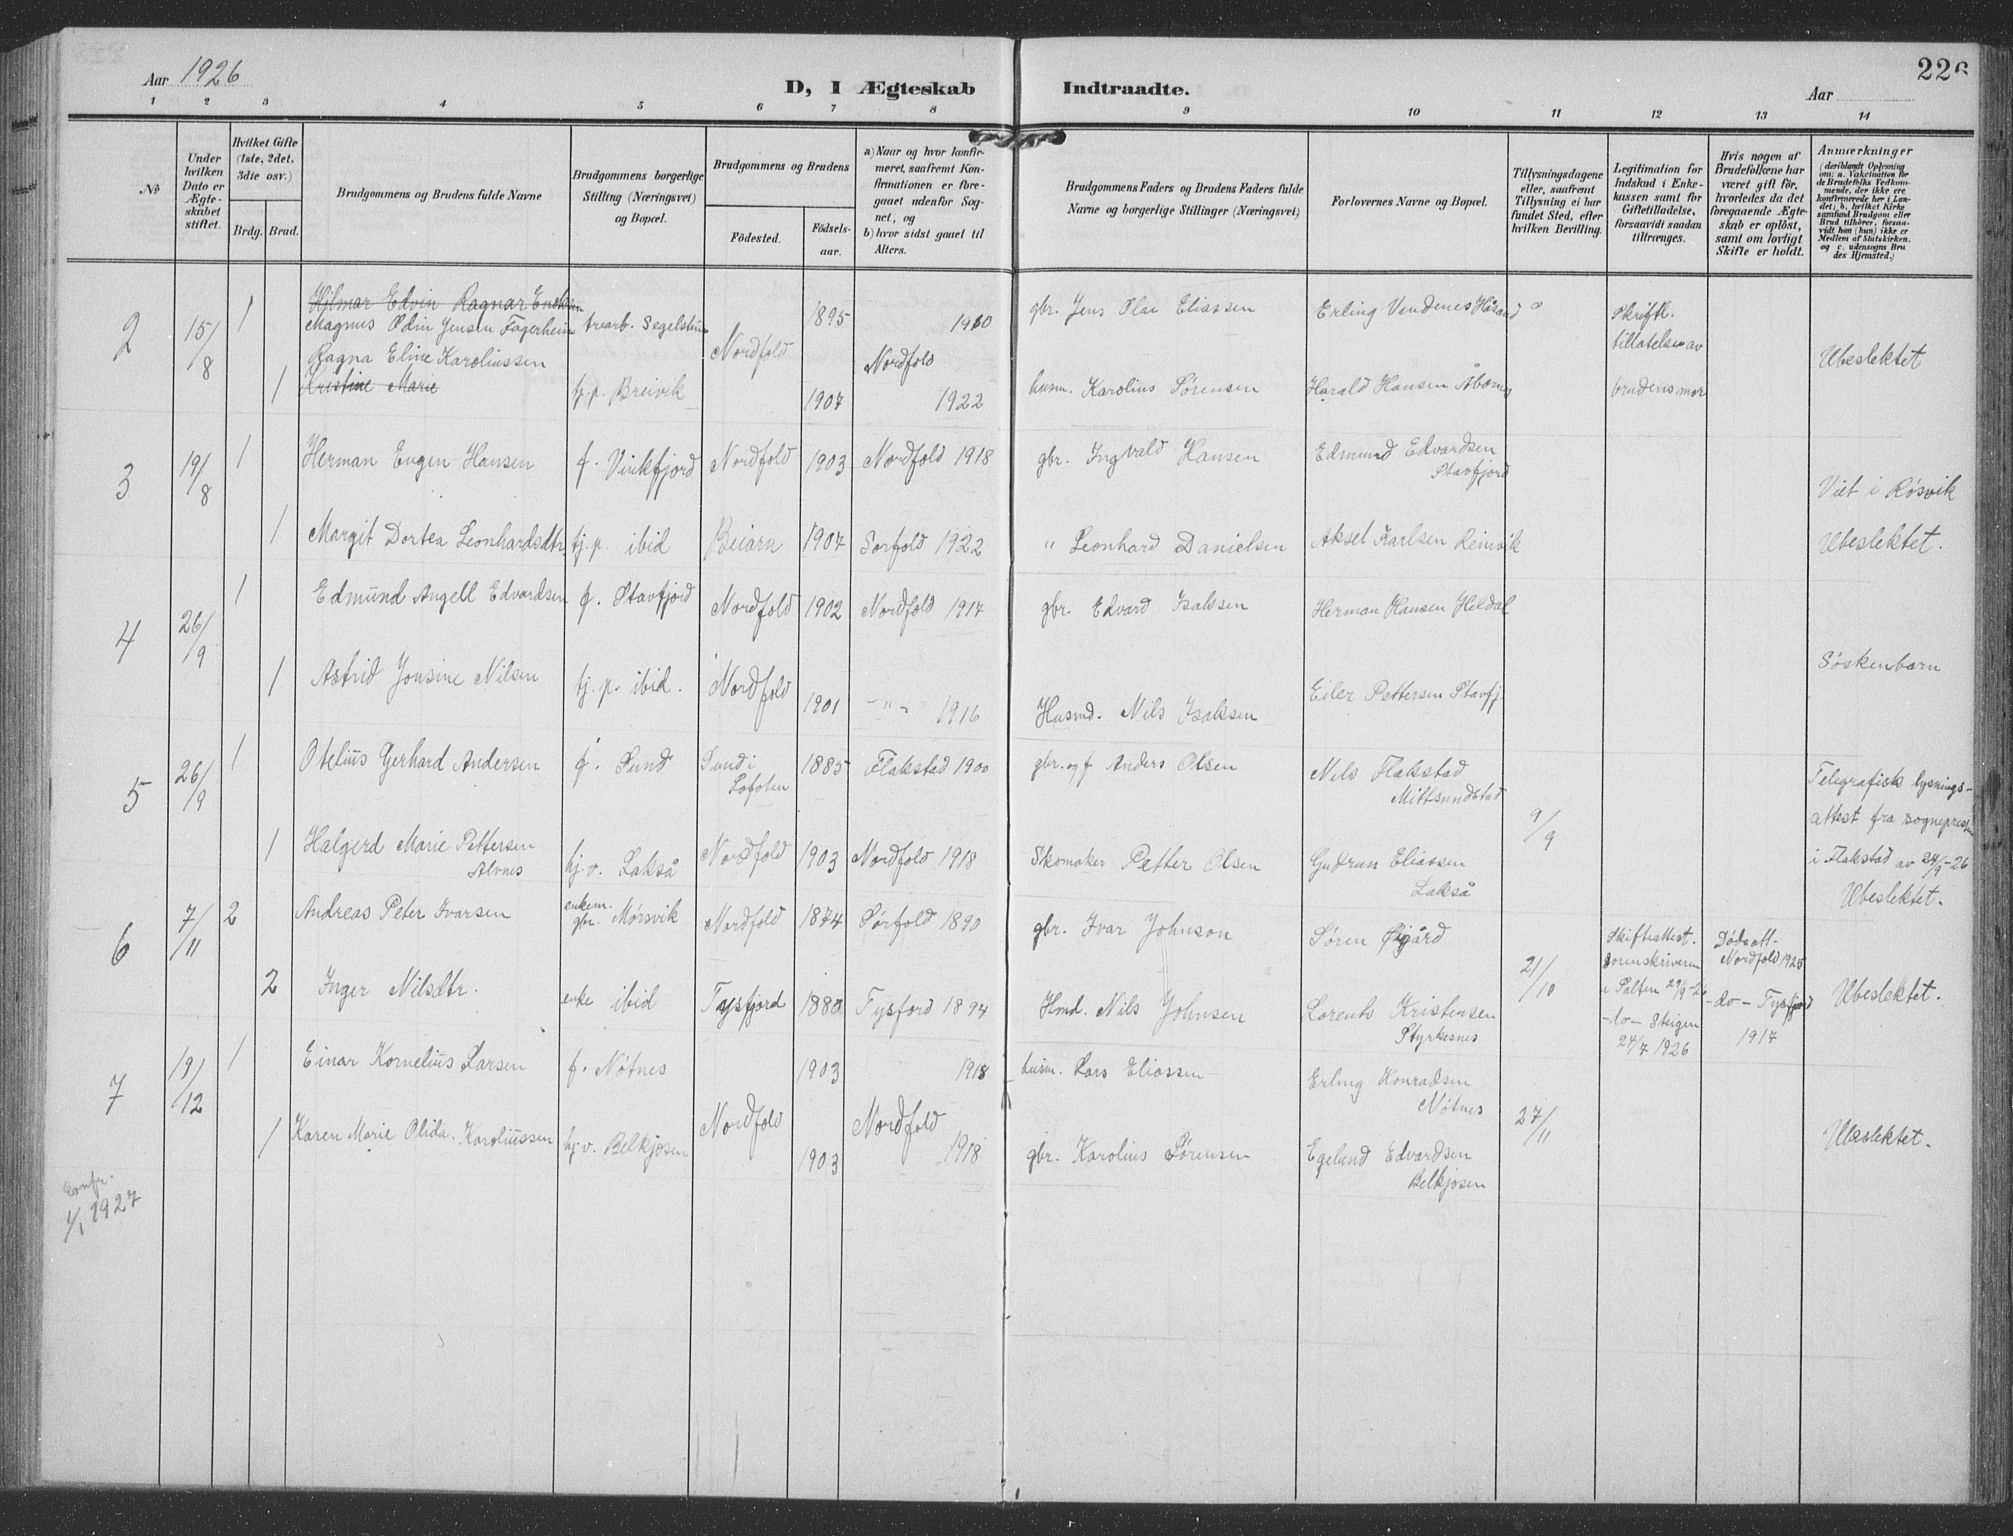 Aar 1926
D, I Ægteskab Indtraadte.
226
Aar
1 2 3 4 5 6 7 8 9 10 11 12 13 14
No
Under hvilken Dato er Ægteskabet stiftet.
Hvilket Gifte (1ste, 2det, 3die osv.)
Brdg. Brud.
Brudgommens og Brudens fulde Navne
Brudgommens borgerlige Stilling (Næringsvei) og Bopæl.
Brudgommens og Brudens
Fødested.
Fødselsaar.
a) Naar og hvor konfirmeret, saafremt Konfirmationen er foregaaet udenfor Sognet, og
b) hvor sidst gaaet til Alters.
Brudgommens Faders og Brudens Faders fulde Navne og borgerlige Stillinger (Næringsvei)
Forlovernes Navne og Bopæl.
Tillysningsdagene eller, saafremt Tillysning ei har fundet Sted, efter hvilken Bevilling.
Legitimation for Indskud i Enkekassen samt for Giftetilladelse, forsaavidt saadan tiltrænges.
Hvis nogen af Brudefolkene har været gift før, hvorledes da det foregaaende Ægteskab er opløst, samt om lovligt Skifte er holdt.
Anmærkninger
(deriblandt Oplysning om: a. Vakcination for de Brudefolks Vedkommende, der ikke ere konfirmerede her i Landet; b. hvilket Kirkesamfund Brudgom eller Brud tilhører, forsaavidt han (hun) ikke er Medlem af Statskirken, og c. udensogns Brudes Hjemsted.)
2 15/8 1
Hjlmar Edvin Ragnar
Magnus Odin Jensen Fagerheim
1895 1910 gbr. Jens Olai Eliassen Erling Vendenes
Skriftl.
Nordfold Nordfold tillatelse av Ubeslektet
Ragna Eline Karoliussen
1 Kristine Marie tj.p. Breivik 1907 1922 husm. Karolius Sørensen Harald Hansen brudens mor
3 19/8 1 Herman Eugen Hansen f. Vinkfjord Nordfold 1903 Nordfold 1918 gbr. Ingvald Hansen Edmund Edvardsen
Stavfjord
Viet i Røsvik
1 Margit Dortea Leonhardsdtr tj.p. ibid Beiarn 1907 Sørfold 1922 " Leonhard Danielsen Aksel Karlsen Reinvik Ubeslektet.
4 26/9 1 Edmund Angell Edvardsen f. Stavfjord Nordfold 1902 Nordfold 1917 gbr. Edvard Isaksen Herman Hansen Heldal
Søskenbarn
1 Astrid Jonsine Nilsen tj.p. ibid. Nordfold 1901 - " - 1916 Husmd. Nils Isaksen Eiler Pettersen Stavfj
5 26/9 1 Otelius Gerhard Andersen f. Sund Sund i Lofoten 1885 Flakstad 1900 gbr. og f Anders Olsen Nils Flakstad
Mittsundstad
9/9
Telegrafisk lysnings-
attest fra sognepresten
i Flakstad av 24/9-26
Ubeslektet.
1 Halgerd Marie Pettersen
Alvnes
hj.v. Lakså Nordfold 1903 Nordfold 1918 Skomaker Petter Olsen Gudrun Eliassen
Lakså
6 7/11 2 Andreas Peter Ivarsen enkem. gbr. Mørsvik Nordfold 1874 Sørfold 1890 gbr. Ivar Johnson Søren Øigård
21/10
Skifteattest.
Sorenskriveren
i Salten 29/9-26
Dødsatt-
Nordfold 1925
2 Inger Nilsdtr. enke ibid Tysfjord 1880 Tysford 1894 Hmd. Nils Johnsen Lorents Kristensen
Styrkesnes
-do- Steigen
24/7 1926
-do- Tysfjord
1917
Ubeslektet.
7 19/12 1 Einar Kornelius Larsen f. Nøtnes 1903 1918 husm. Lars Eliassen Erling Konradsen
Nøtnes
Nordfold Nordfold 27/11 Ubeslektet.
1 Karen Marie Olida. Karoliussen hj.v. Belkjosen 1903 1918 gbr. Karolius Sørensen Egelund Edvardsen
Belkjosen
Confr.
1/1 1927